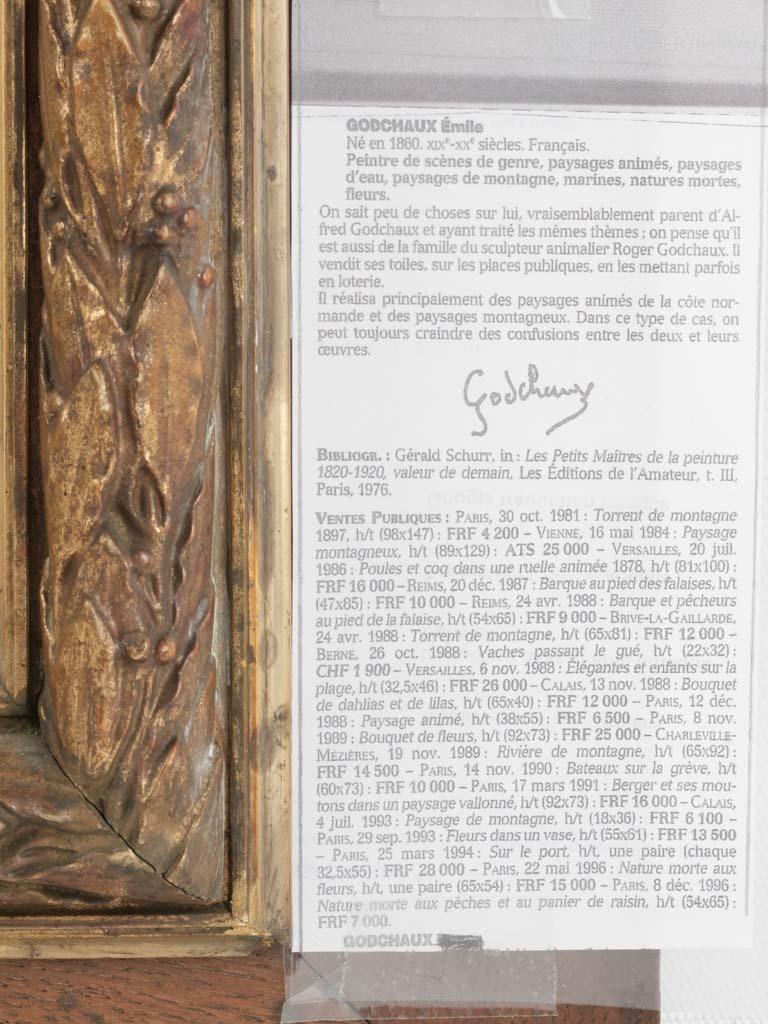 GODCHAUX Émile
Né en 1860. XIXe-XXe siècles. Français.
Peintre de scènes de genre, paysages animés, paysages
d'eau, paysages de montagne, marines, natures mortes,
fleurs.
On sait peu de choses sur lui, vraisemblablement parent d'Al-
fred Godchaux et ayant traité les mêmes thèmes ; on pense qu'il
est aussi de la famille du sculpteur animalier Roger Godchaux. Il
vendit ses toiles, sur les places publiques, en les mettant parfois
en loterie.
Il réalisa principalement des paysages animés de la côte nor-
mande et des paysages montagneux. Dans ce type de cas, on
peut toujours craindre des confusions entre les deux et leurs
œuvres.
Godchaux
BIBLIOGR. : Gérald Schurr, in : Les Petits Maîtres de la peinture
1820-1920, valeur de demain, Les Éditions de l'Amateur, t. III,
Paris, 1976.
VENTES PUBLIQUES : PARIS, 30 oct. 1981 : Torrent de montagne
1897, h/t (98x147) : FRF 4 200 – VIENNE, 16 mai 1984 : Paysage
montagneux, h/t (89x129) : ATS 25 000 – VERSAILLES, 20 juil.
1986 : Poules et coq dans une ruelle animée 1878, h/t (81x100) :
FRF 16 000 – REIMS, 20 déc. 1987 : Barque au pied des falaises, h/t
(47x85) : FRF 10 000 – REIMS, 24 avr. 1988 : Barque et pêcheurs
au pied de la falaise, h/t (54x65) : FRF 9 000 – BRIVE-LA-GAILLARDE,
24 avr. 1988 : Torrent de montagne, h/t (65x81) : FRF 12 000 –
BERNE, 26 oct. 1988 : Vaches passant le gué, h/t (22x32) :
CHF 1 900 – VERSAILLES, 6 nov. 1988 : Élégantes et enfants sur la
plage, h/t (32,5x46) : FRF 26 000 – CALAIS, 13 nov. 1988 : Bouquet
de dahlias et de lilas, h/t (65x40) : FRF 12 000 – PARIS, 12 déc.
1988 : Paysage animé, h/t (38x55) : FRF 6 500 – PARIS, 8 nov.
1989 : Bouquet de fleurs, h/t (92x73) : FRF 25 000 – CHARLEVILLE-
MÉZIÈRES, 19 nov. 1989 : Rivière de montagne, h/t (65x92) :
FRF 14 500 – PARIS, 14 nov. 1990 : Bateaux sur la grève, h/t
(60x73) : FRF 10 000 – PARIS, 17 mars 1991 : Berger et ses mou-
tons dans un paysage vallonné, h/t (92x73) : FRF 16 000 – CALAIS,
4 juil. 1993 : Paysage de montagne, h/t (18x36) : FRF 6 100 –
PARIS, 29 sep. 1993 : Fleurs dans un vase, h/t (55x61) : FRF 13 500
– PARIS, 25 mars 1994 : Sur le port, h/t, une paire (chaque
32,5x55) : FRF 28 000 – PARIS, 22 mai 1996 : Nature morte aux
fleurs, h/t, une paire (65x54) : FRF 15 000 – PARIS, 8 déc. 1996 :
Nature morte aux pêches et au panier de raisin, h/t (54x65) :
FRF 7 000.
GODCHAUX